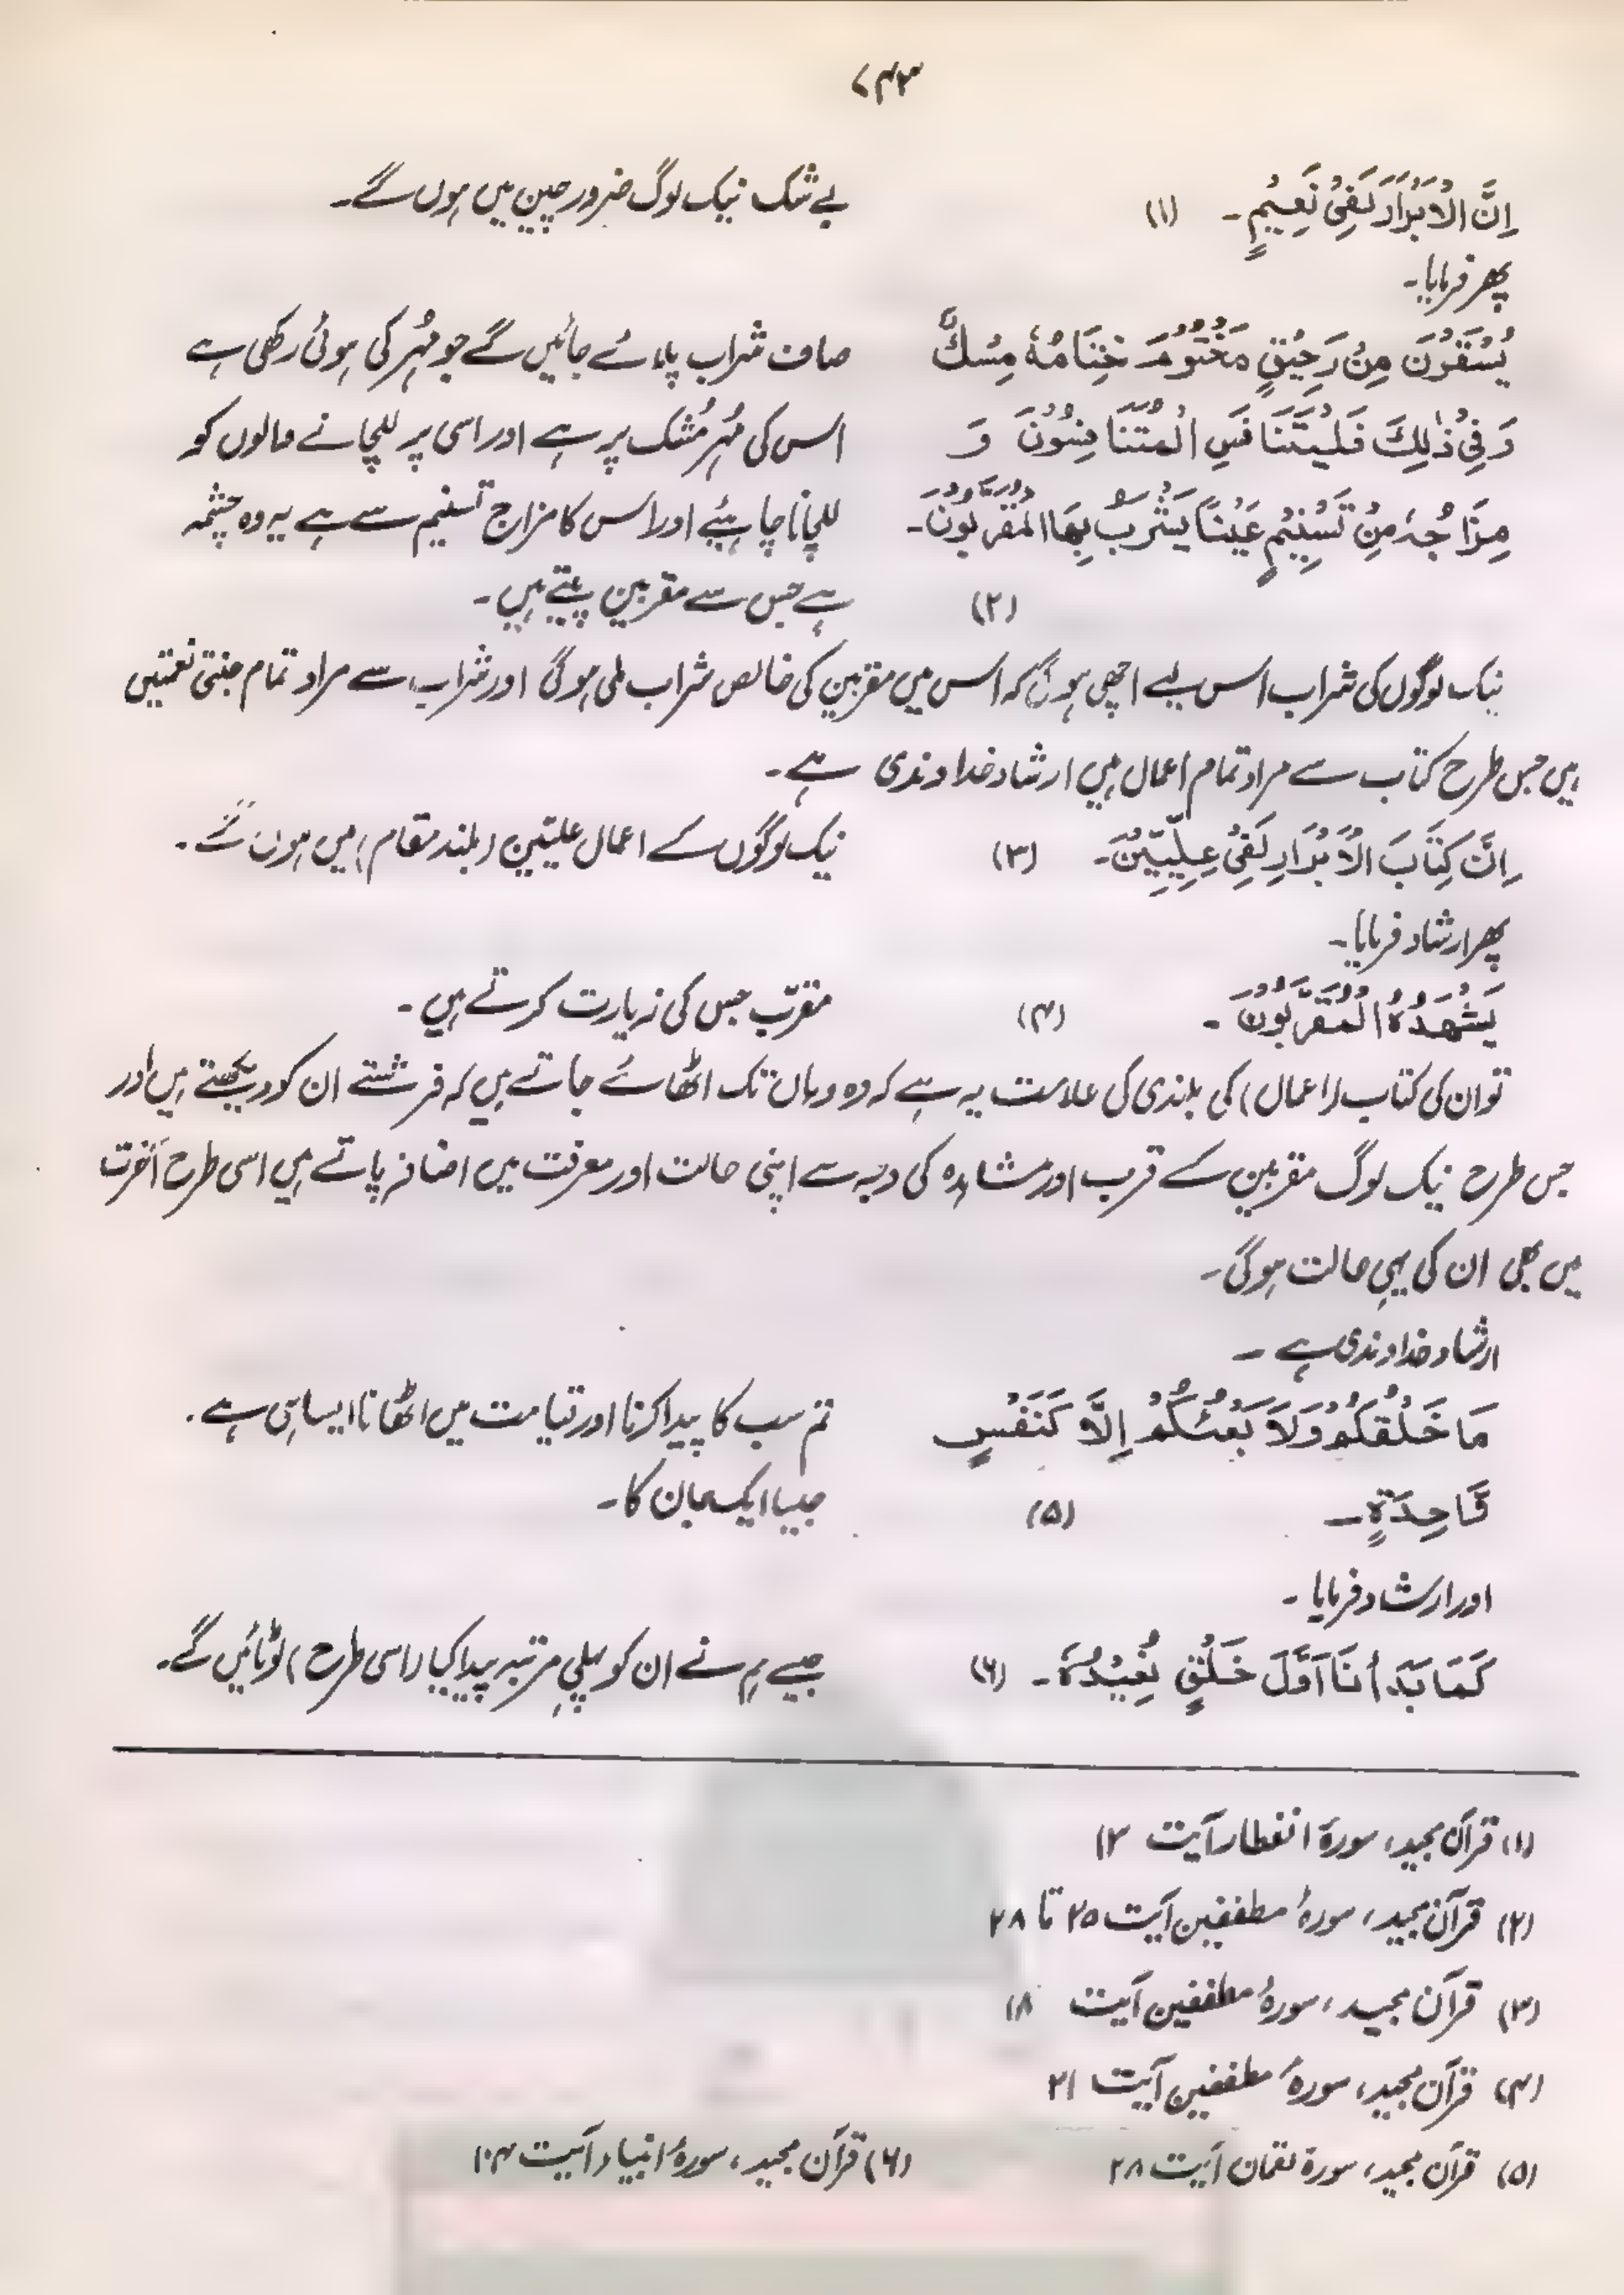 ۷۴۳
اِنَّ الْاَبْرَارَ لَفِیْ نَعِیْمٍ۔ (۱) بے شک نیک لوگ ضرور چین میں ہوں گے۔
پھر فرمایا۔
یُسْقَوْنَ مِنْ رَحِیْقٍ مَخْتُوْمٍ خِتَامُهٗ مِسْكٌ صاف شراب پلائے جائیں گے جو مُہر کی ہوئی رکھی ہے
وَفِیْ ذٰلِكَ فَلْیَتَنَافَسِ الْمُتَنَافِسُوْنَ وَ اس کی مُہر مُشک پر ہے اور اسی پر للچانے والوں کو
مِزَاجُهٗ مِنْ تَسْنِیْمٍ عَیْنًا یَشْرَبُ بِهَا الْمُقَرَّبُوْنَ۔ للچانا چاہیئے اور اس کا مزاج تسنیم سے ہے یہ وہ چشمہ
(۲) ہے جس سے مقربین پیتے ہیں۔
نیک لوگوں کی شراب اس لیے اچھی ہوگی کہ اس میں مقربین کی خالص شراب ملی ہوگی اور شراب سے مراد تمام جنتی نعمتیں
ہیں جس طرح کتاب سے مراد تمام اعمال ہیں ارشاد خداوندی ہے۔
اِنَّ كِتَابَ الْاَبْرَارِ لَفِیْ عِلِّیِّیْنَ۔ (۳) نیک لوگوں کے اعمال علیّین (بلند مقام) میں ہوں گے۔
پھر ارشاد فرمایا۔
یَشْهَدُهُ الْمُقَرَّبُوْنَ۔ (۴) مقرّب جس کی زیارت کرتے ہیں۔
تو ان کی کتاب (اعمال) کی بلندی کی علامت یہ ہے کہ وہ وہاں تک اٹھائے جاتے ہیں کہ فرشتے ان کو دیکھتے ہیں اور
جس طرح نیک لوگ مقربین کے قرب اور مشاہدہ کی وجہ سے اپنی حالت اور معرفت میں اضافہ پاتے ہیں اسی طرح آخرت
میں بھی ان کی یہی حالت ہوگی۔
ارشاد خداوندی ہے۔
مَا خَلْقُكُمْ وَلَا بَعْثُكُمْ اِلَّا كَنَفْسٍ تم سب کا پیدا کرنا اور قیامت میں اٹھانا ایسا ہی ہے۔
وَّاحِدَةٍ۔ (۵) جیسا ایک جان کا۔
اور ارشاد فرمایا۔
كَمَا بَدَأْنَا اَوَّلَ خَلْقٍ نُعِیْدُهٗ۔ (۶) جیسے ہم نے ان کو پہلی مرتبہ پیدا کیا (اسی طرح) لوٹائیں گے۔
(۱) قرآن مجید، سورۃ انفطار آیت ۱۳
(۲) قرآن مجید، سورۂ مطففین آیت ۲۵ تا ۲۸
(۳) قرآن مجید، سورۂ مطففین آیت ۱۸
(۴) قرآن مجید، سورۂ مطففین آیت ۲۱
(۵) قرآن مجید، سورۃ لقمان آیت ۲۸ (۶) قرآن مجید، سورۂ انبیاء آیت ۱۰۴